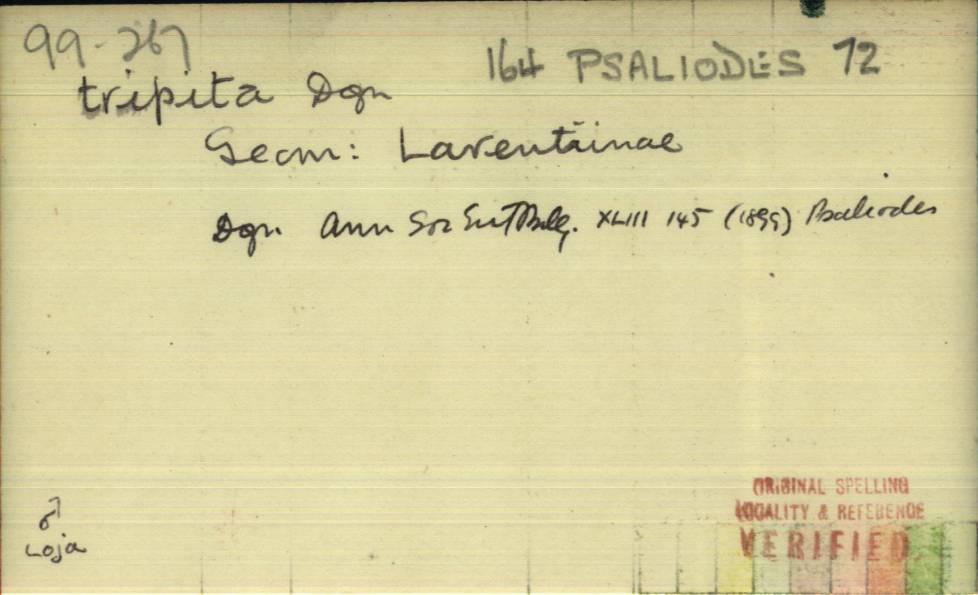 99-267
164 PSALIODES 72
tripita Dgn
Geom: Larentiinae
Dgn. Ann Soc Ent Belg. XLIII 145 (1899) Psaliodes
♂
Loja
ORIGINAL SPELLING
LOCALITY & REFERENCE
VERIFIED